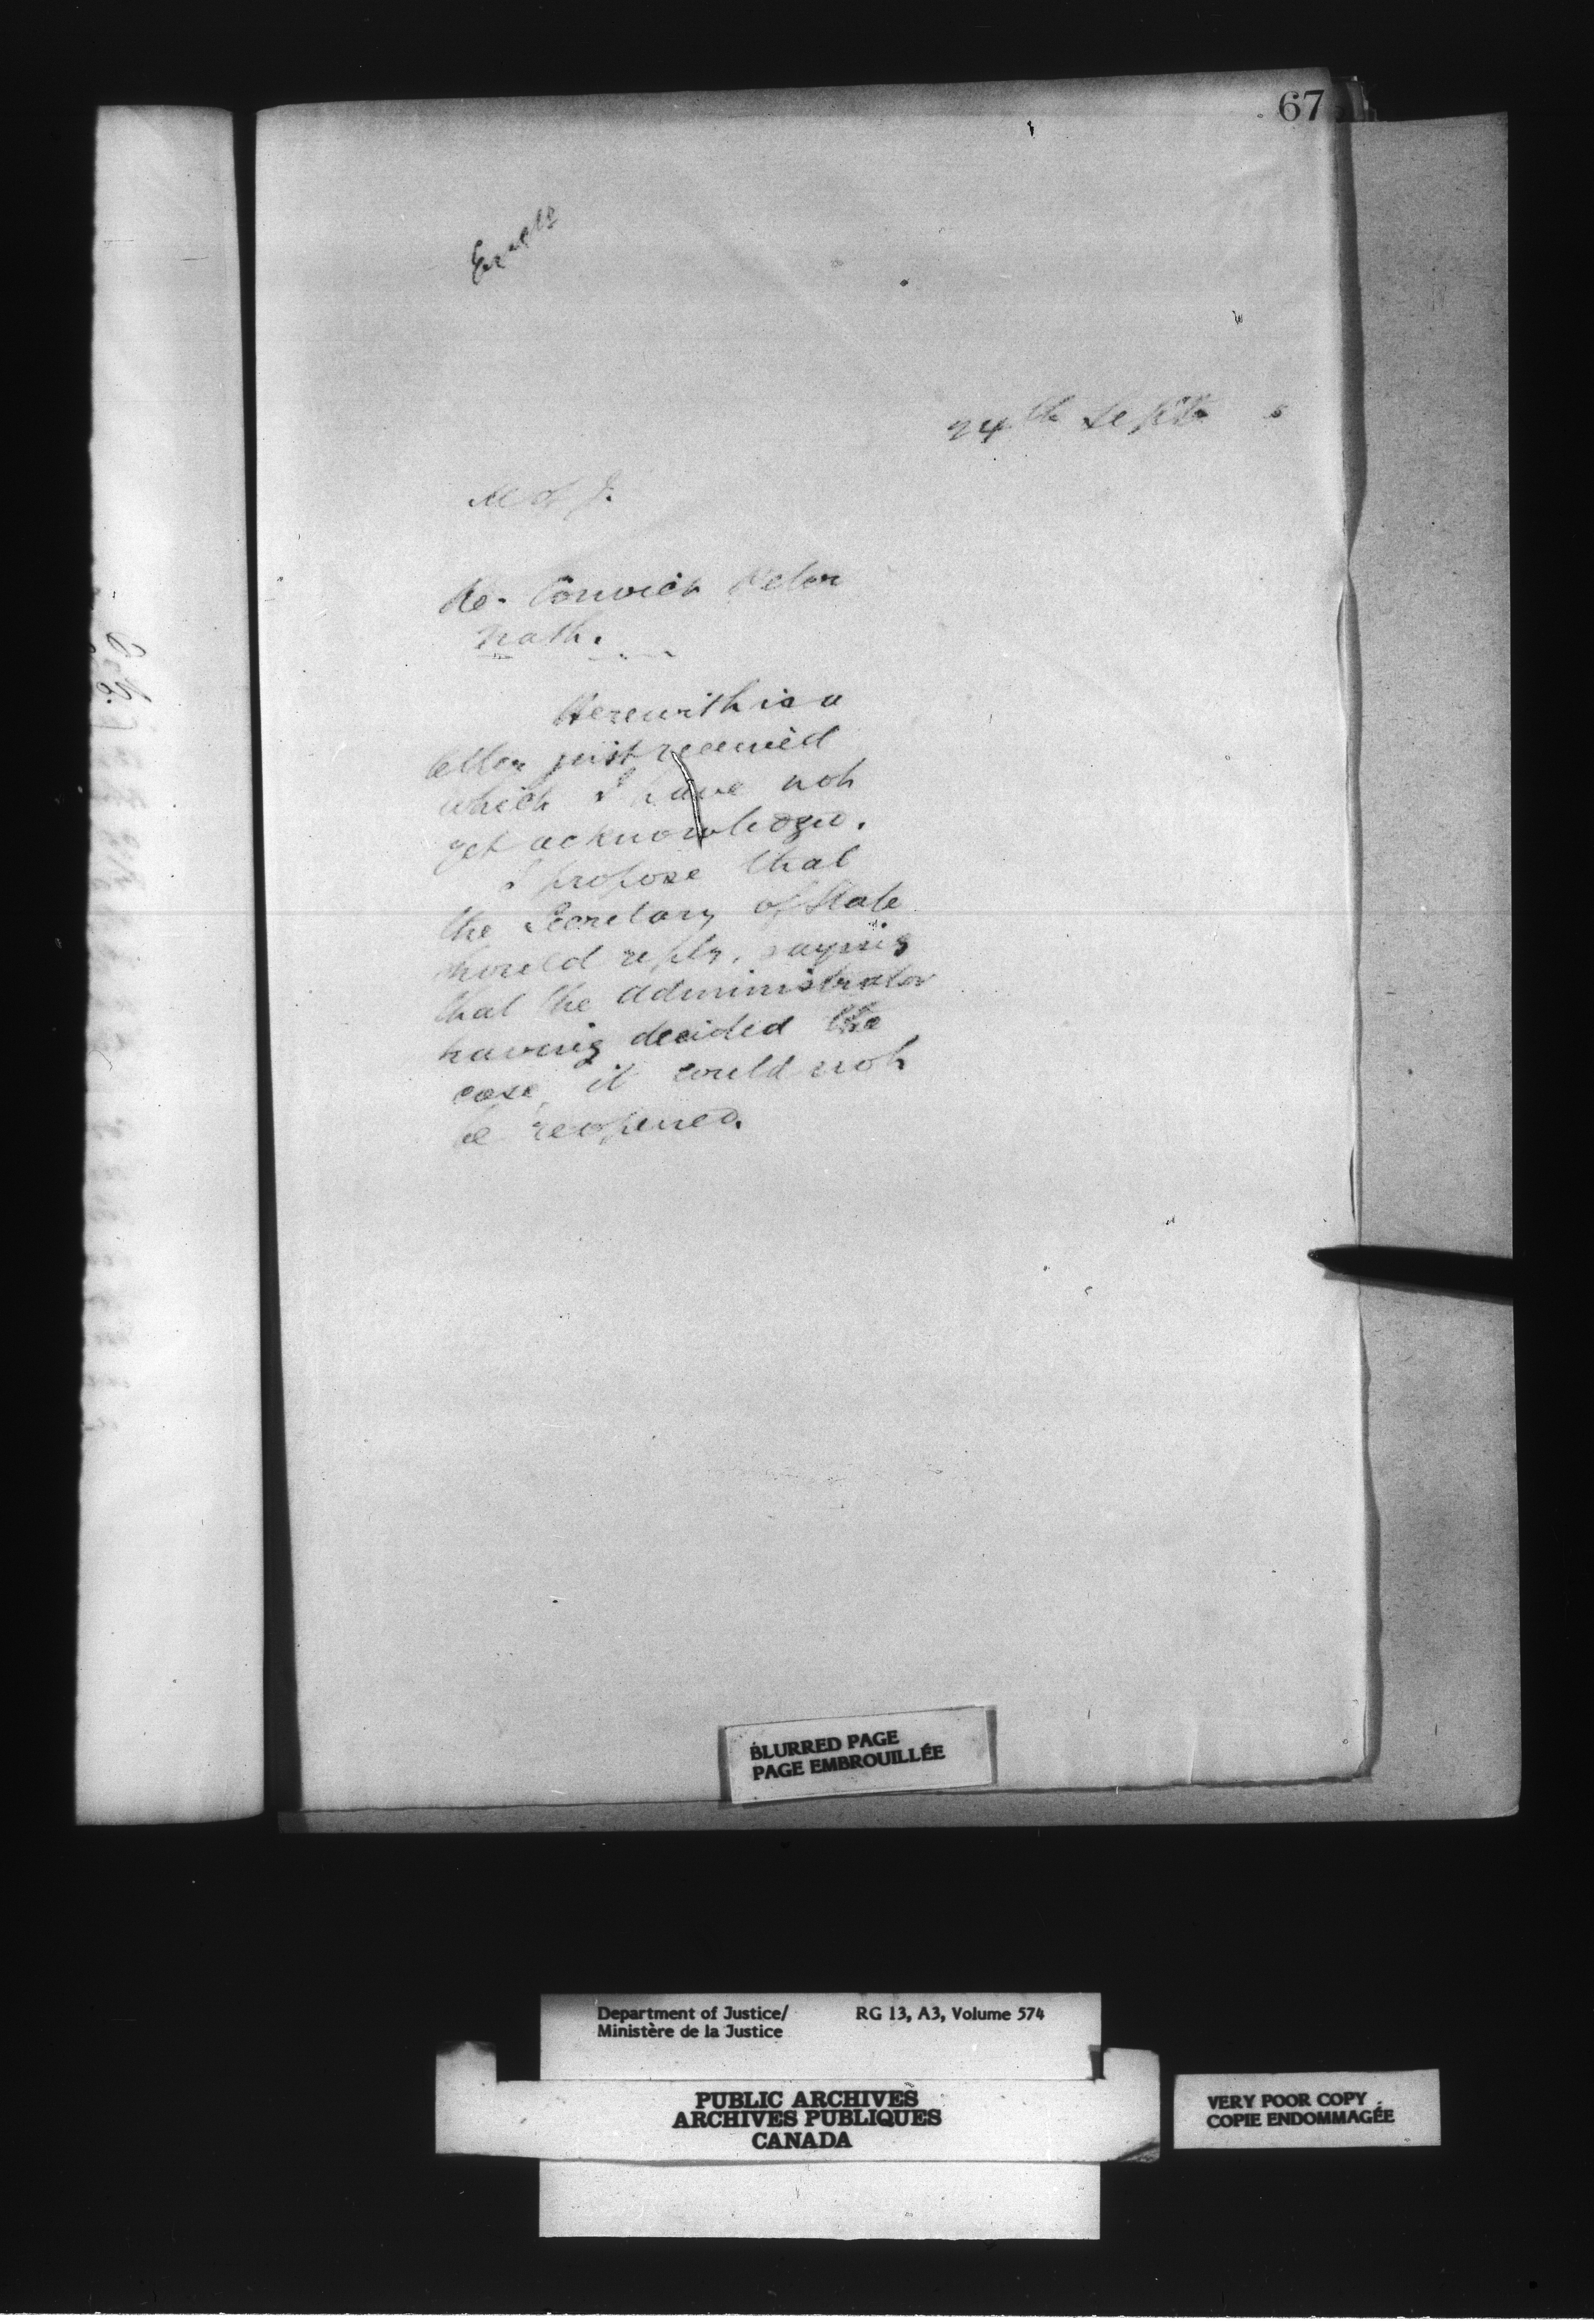 67
24th Sept. 5
M of J.
Re. Convict Peter
Nash.
Herewith is a
letter just received
which I have not
yet acknowledged.
I propose that
the Secretary of State
should reply, saying
that the Administrator
having decided the
case, it could not
be reopened.
BLURRED PAGE
PAGE EMBROUILLÉE
Department of Justice/ RG 13, A3, Volume 574
Ministère de la Justice
PUBLIC ARCHIVES
ARCHIVES PUBLIQUES
CANADA
VERY POOR COPY
COPIE ENDOMMAGÉE